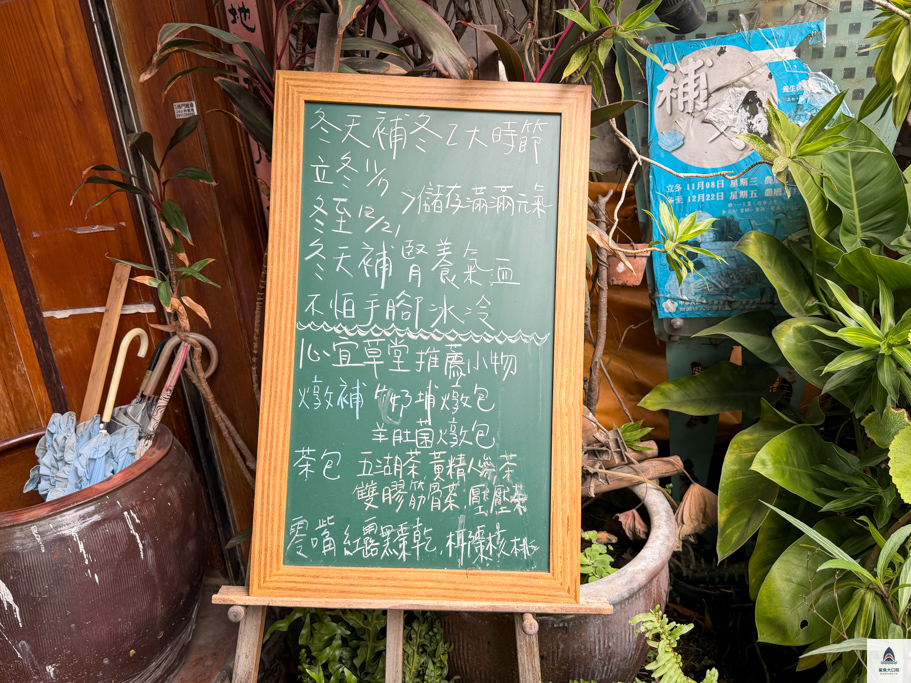 冬天補冬乙大時節
立冬 11/7
冬至 12/21 >儲存滿滿元氣
冬天補腎養氣血
不怕手腳冰冷
心宜草堂推薦小物
燉補 牛奶埔燉包
羊肚菌燉包
茶包 五湖茶 黃精人蔘茶
雙膠筋骨茶.壓壓茶
零嘴 紅露黑棗乾.椒塩核桃
補
立冬 11月08日 星期三
冬至 12月22日 星期五
鯊魚大口咬